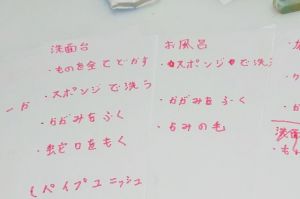 洗面台
・ものを全てどかす
・スポンジで洗う
・かがみをふく
・蛇口をもく
パイプユニッシュ
お風呂
・スポンジで洗う
・かがみをふく
・らみの毛